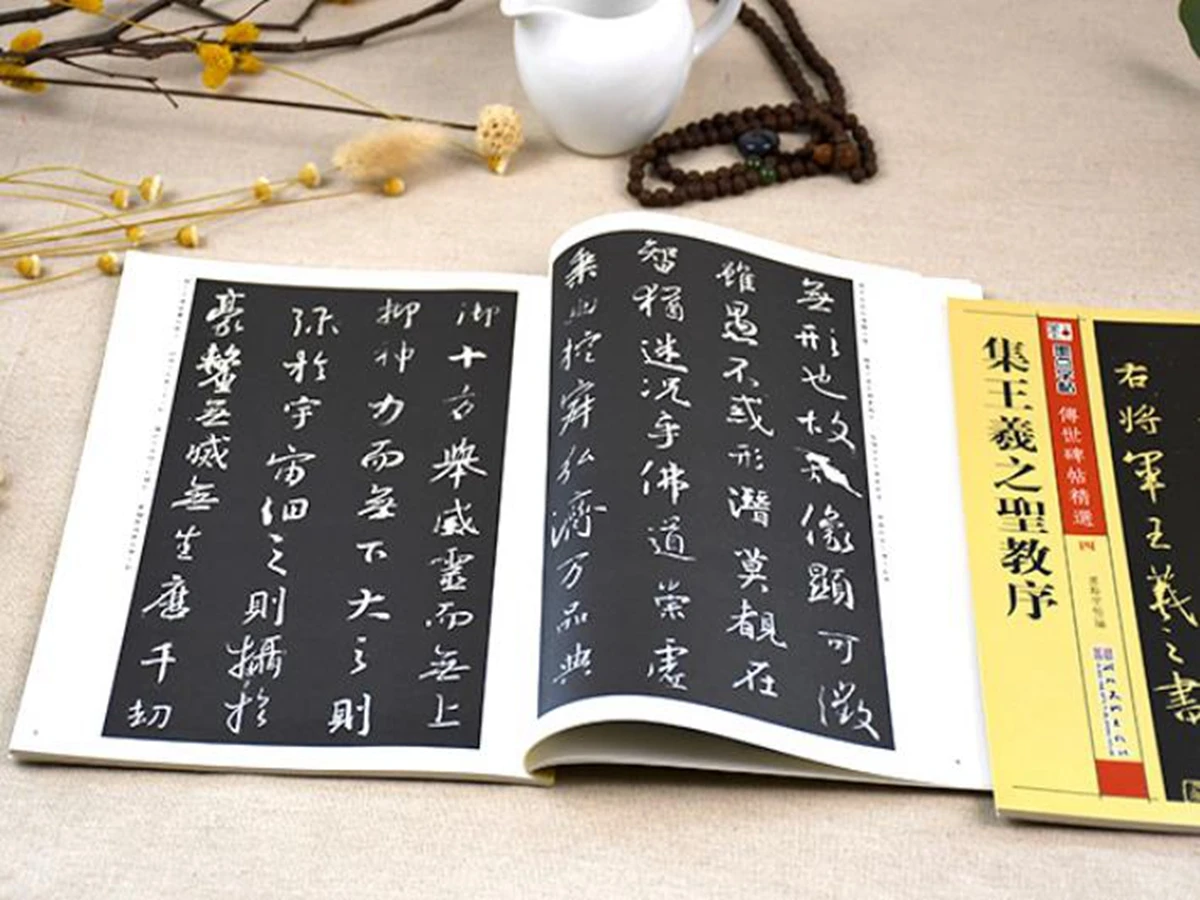 無形也故知像顯可徵
雖愚不惑形潛莫覩在
智猶迷況乎佛道崇虛
乘幽控寂弘濟万品典
御十方舉威靈而無上
抑神力而無下大之則
弥於宇宙細之則攝於
豪釐無滅無生歷千劫
右將軍王羲之書
墨点字帖
傳世碑帖精選
四
集王羲之聖教序